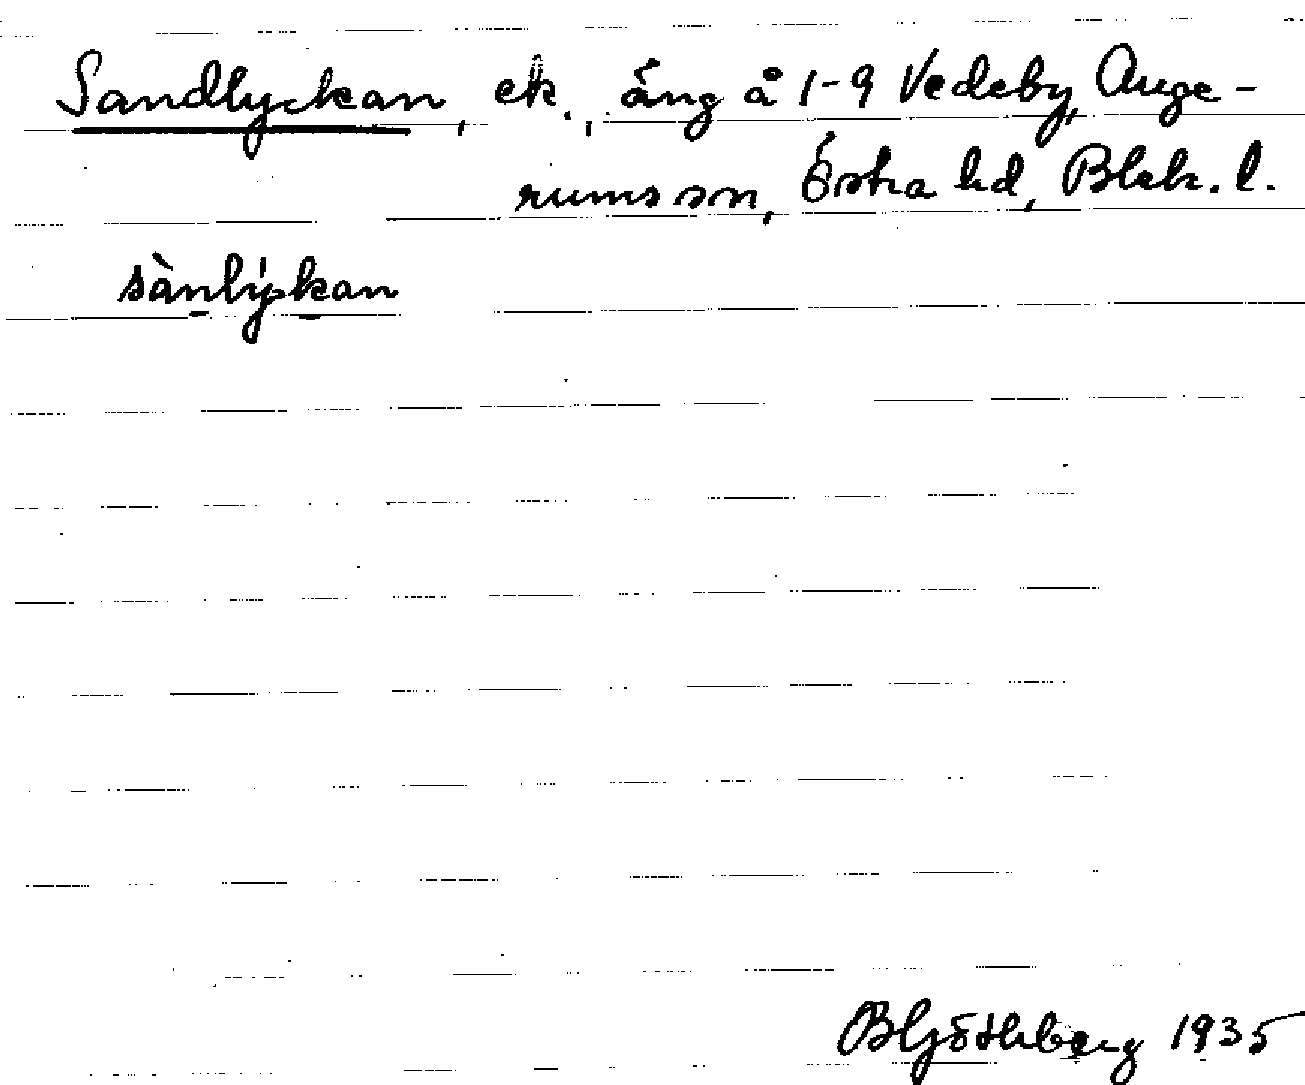 Sandlyckan, ek., äng å 1-9 Vedeby, Auge-
rums sn, Östra hd, Blek. l.
sànlýkan
B Göthberg 1935